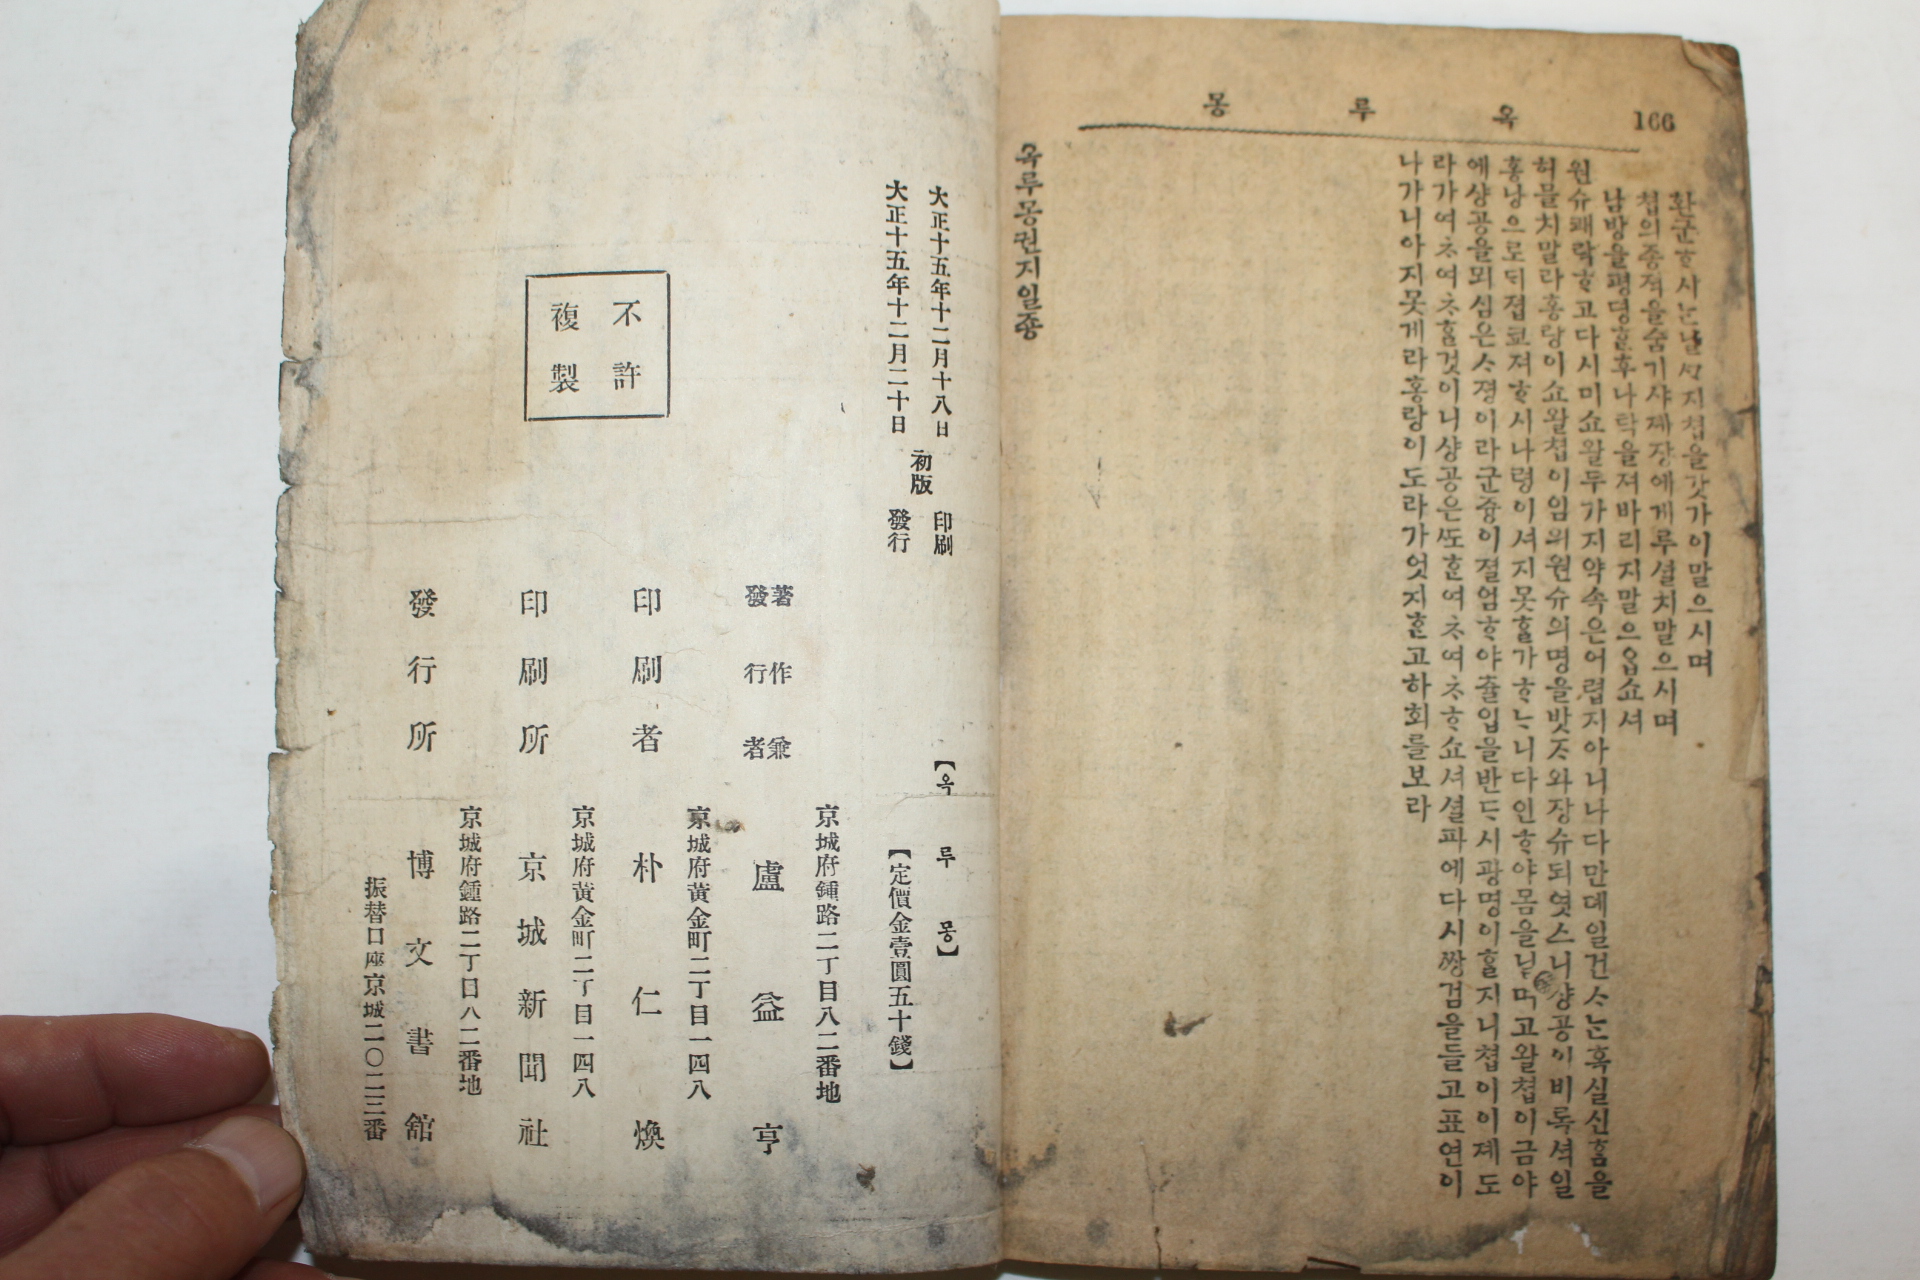 166
옥루몽
환군ᄒᆞ시ᄂᆞᆫ날ᄭᆞ지쳡을갓가이말으시며
쳡의종젹을숨기샤졔장에게루셜치말으시며
남방을평뎡ᄒᆞᆫ후나탁을져바리지말으옵쇼셔
원슈쾌락ᄒᆞ고다시미쇼왈두가지약속은어렵지아니나다만데일건ᄉᆞᄂᆞᆫ혹실신ᄒᆞᆷ을
허물치말라홍랑이쇼왈쳡이임의원슈의명을밧ᄌᆞ와장슈되엿스니샹공이비록셕일
홍낭으로ᄃᆡ졉코져ᄒᆞ시나령이셔지못ᄒᆞᆯ가ᄒᆞᄂᆞ니다인ᄒᆞ야몸을니ᄅᆞ며고왈쳡이금야
에샹공을뫼심은ᄉᆞ졍이라군즁이졀엄ᄒᆞ야츌입을반ᄃᆞ시광명이ᄒᆞᆯ지니쳡이이졔도
라가여ᄎᆞ여ᄎᆞᄒᆞᆯ것이니샹공은ᄯᅩᄒᆞᆫ여ᄎᆞ여ᄎᆞᄒᆞ쇼셔셜파에다시쌍검을들고표연이
나가니아지못게라홍랑이도라가엇지ᄒᆞᆫ고하회를보라
옥루몽권지일죵
大正十五年十二月十八日
大正十五年十二月二十日
初版
印刷
發行
【옥루몽】
【定價金壹圓五十錢】
京城府鍾路二丁目八二番地
著作兼
發行者
盧益亨
京城府黃金町二丁目一四八
印刷者
朴仁煥
京城府黃金町二丁目一四八
印刷所
京城新聞社
京城府鍾路二丁目八二番地
發行所
博文書舘
振替口座京城二〇二三番
不許
複製